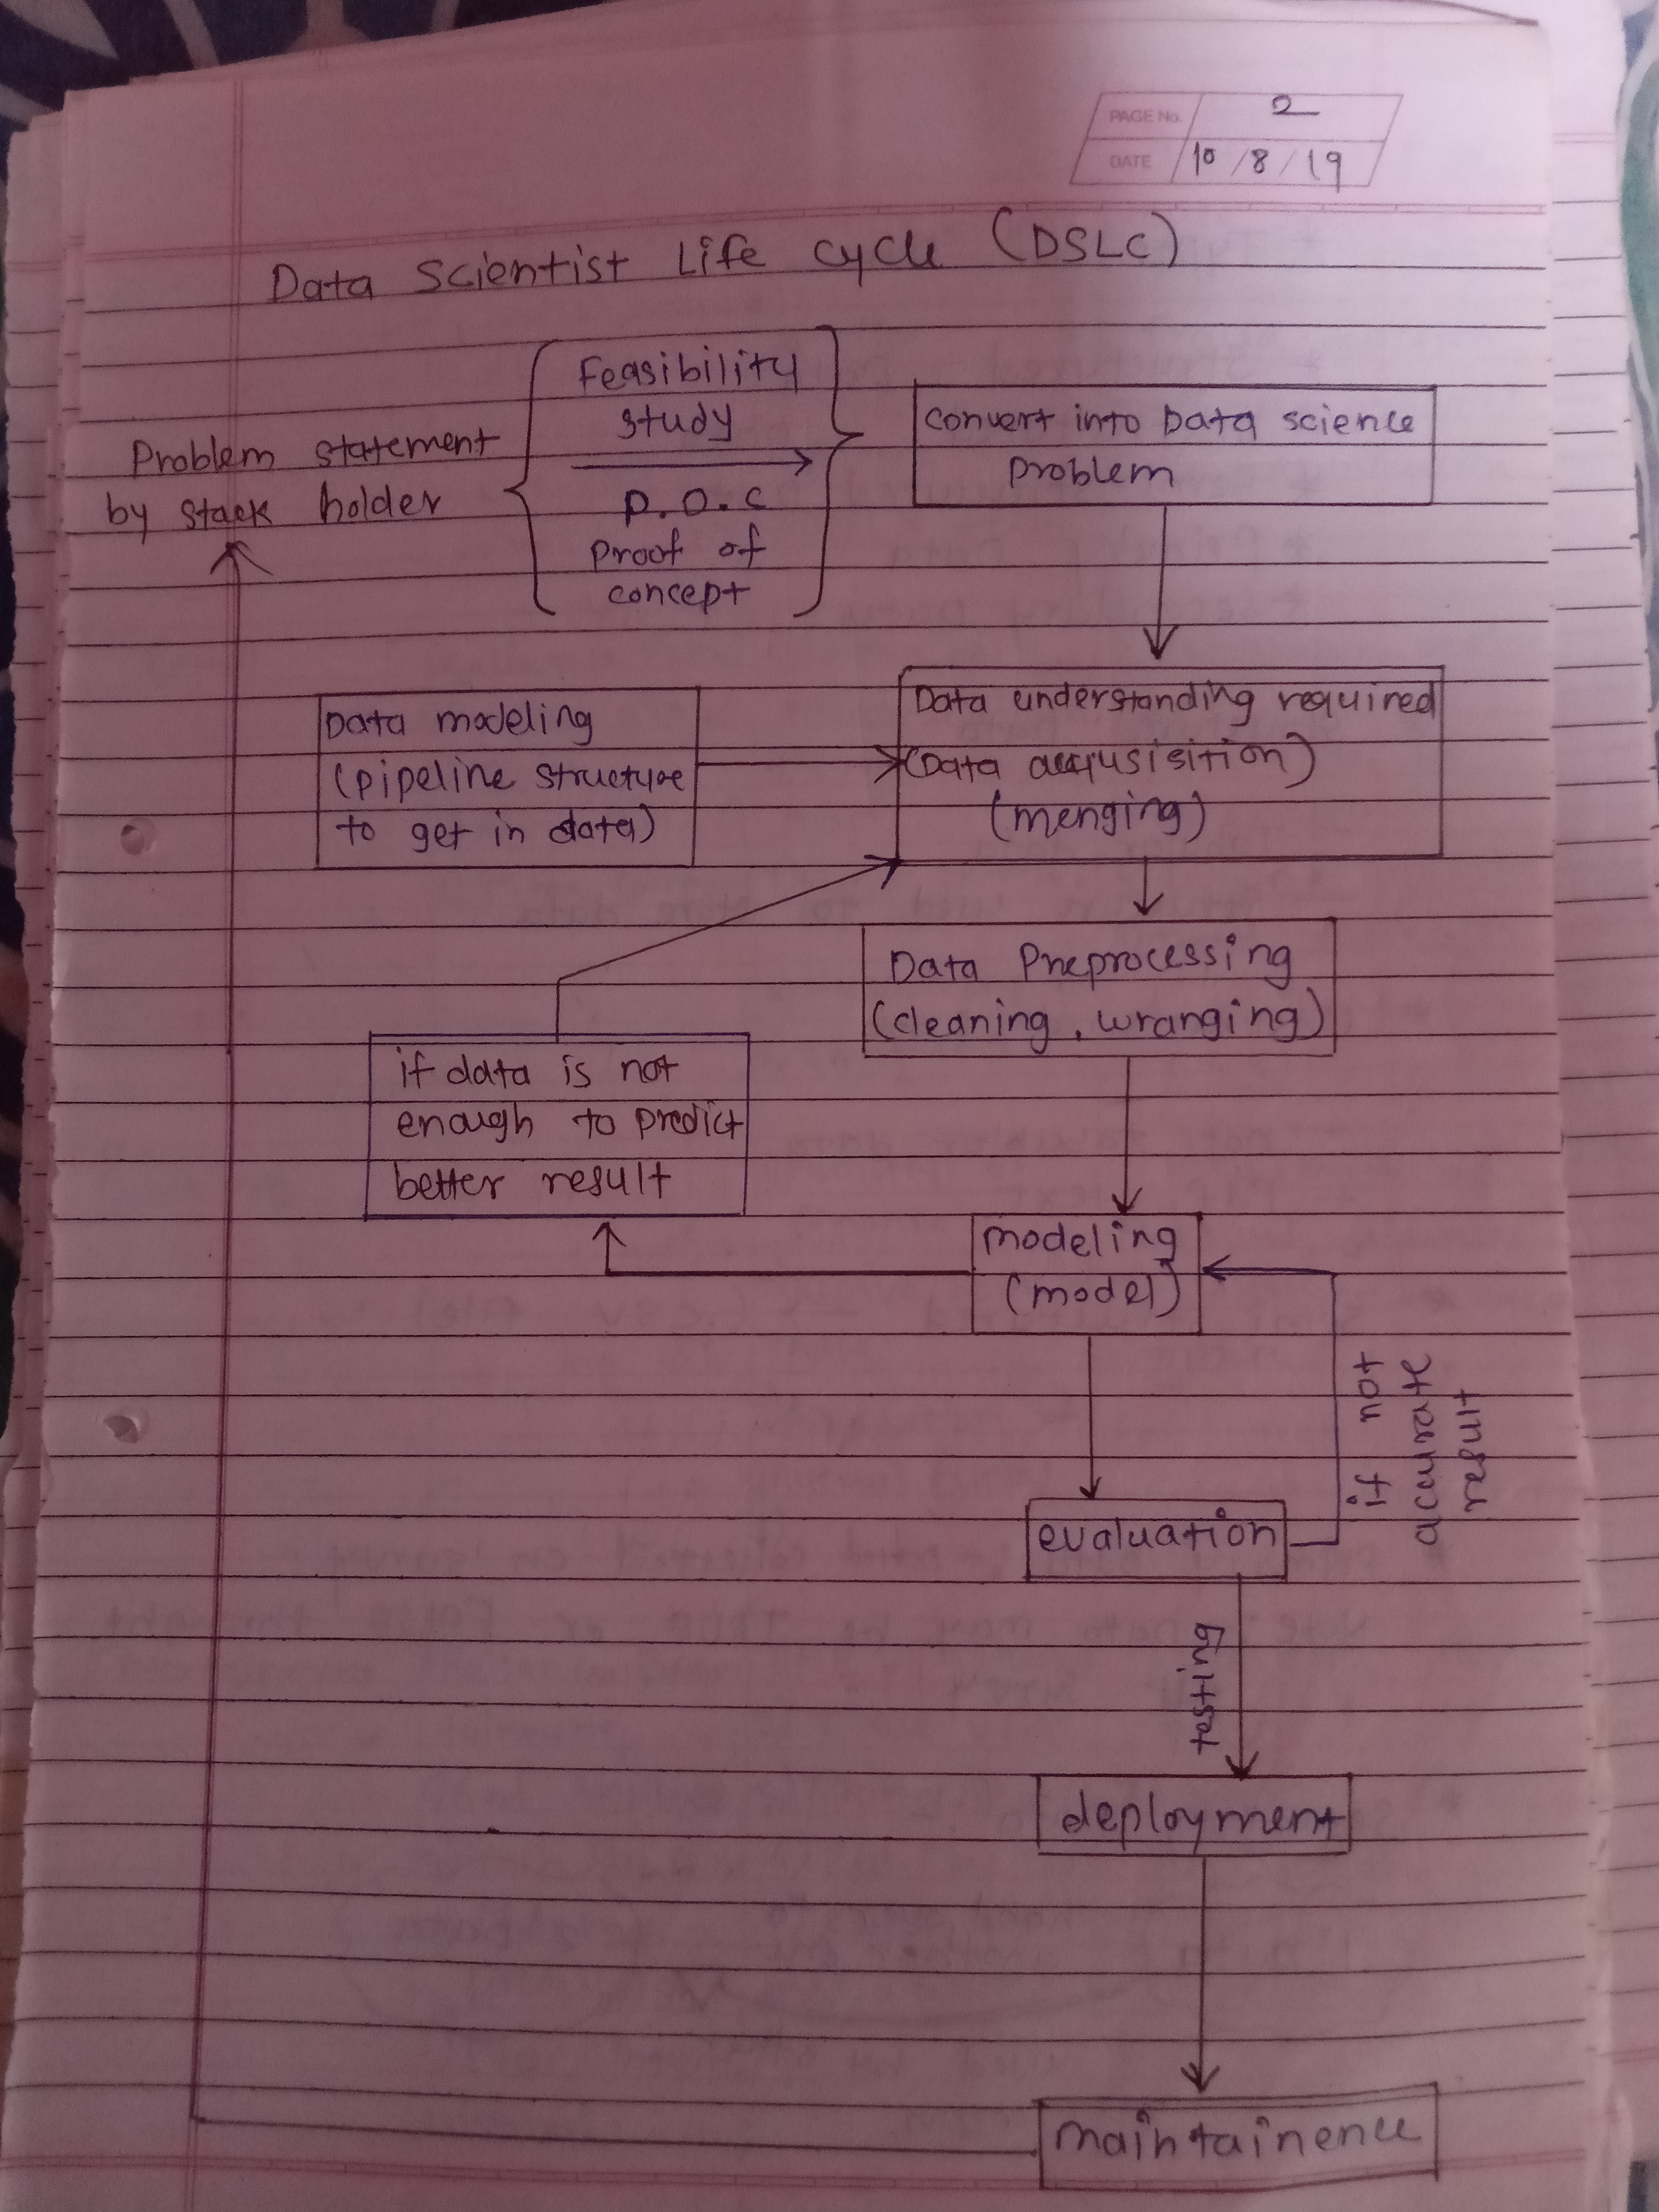 PAGE No. 2
DATE 10/8/19
Data Scientist Life cycle (DSLC)
Problem statement
by stack holder
Feasibility
study
P.O.C
Proof of
concept
convert into Data science
problem
Data modeling
(pipeline structure
to get in data)
Data understanding required
(Data acqusisition)
(merging)
Data Preprocessing
(cleaning, wranging)
if data is not
enough to predict
better result
modeling
(model)
if not
accurate
result
evaluation
testing
deployment
maintainence